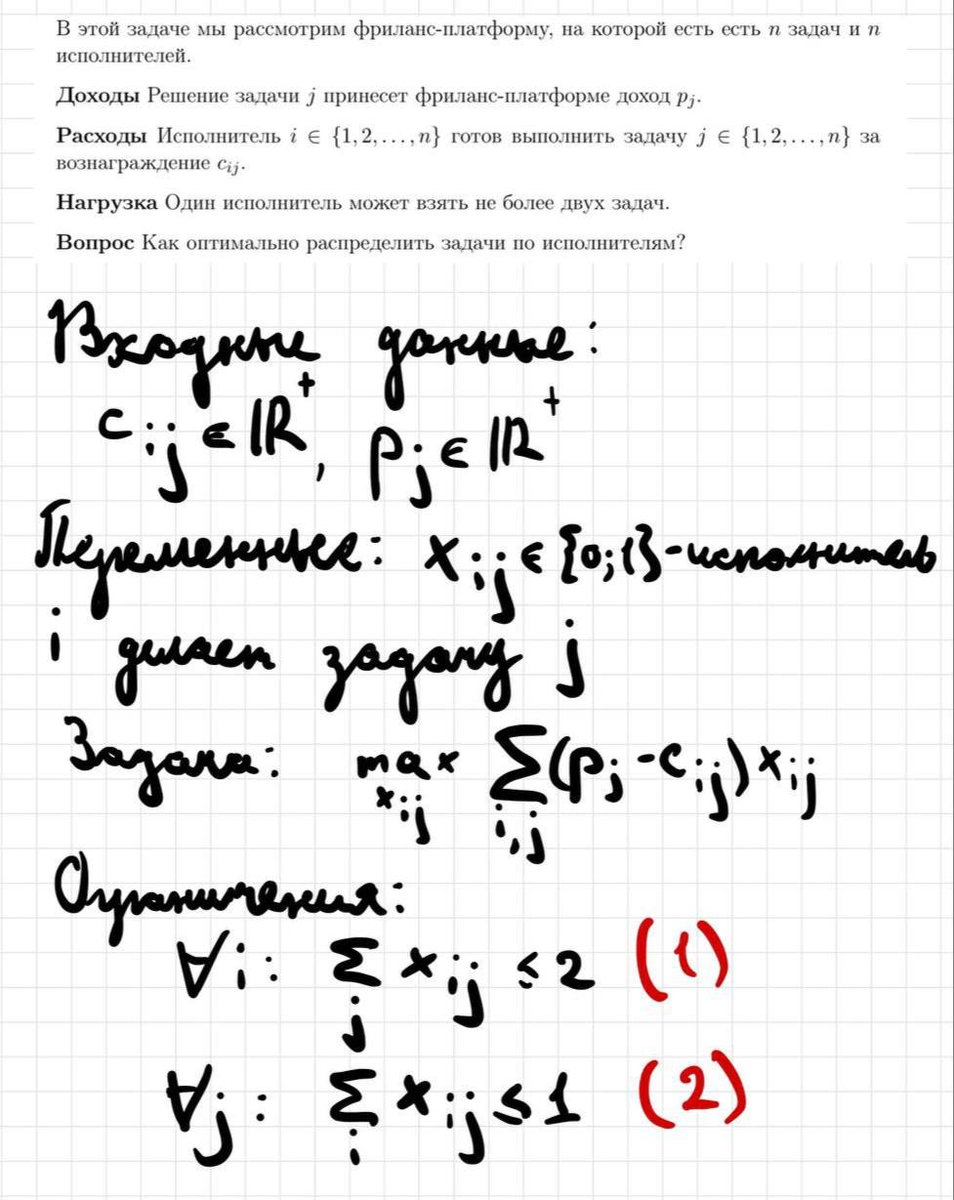 В этой задаче мы рассмотрим фриланс-платформу, на которой есть есть n задач и n
исполнителей.
Доходы Решение задачи j принесет фриланс-платформе доход pⱼ.
Расходы Исполнитель i ∈ {1, 2, . . . , n} готов выполнить задачу j ∈ {1, 2, . . . , n} за
вознаграждение cᵢⱼ.
Нагрузка Один исполнитель может взять не более двух задач.
Вопрос Как оптимально распределить задачи по исполнителям?
Входные данные:
cᵢⱼ ∈ ℝ⁺, pⱼ ∈ ℝ⁺
Переменные: xᵢⱼ ∈ {0;1} - исполнитель
i делает задачу j
Задача: max Σ(pⱼ - cᵢⱼ) xᵢⱼ
xᵢⱼ i,j
Ограничения:
∀i: Σ xᵢⱼ ≤ 2 (1)
j
∀j: Σ xᵢⱼ ≤ 1 (2)
i